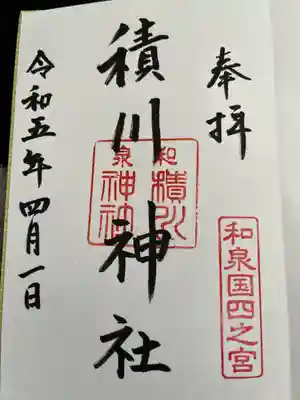 奉拝
和泉国四之宮
積川神社
和積川
泉神社
令和五年四月一日